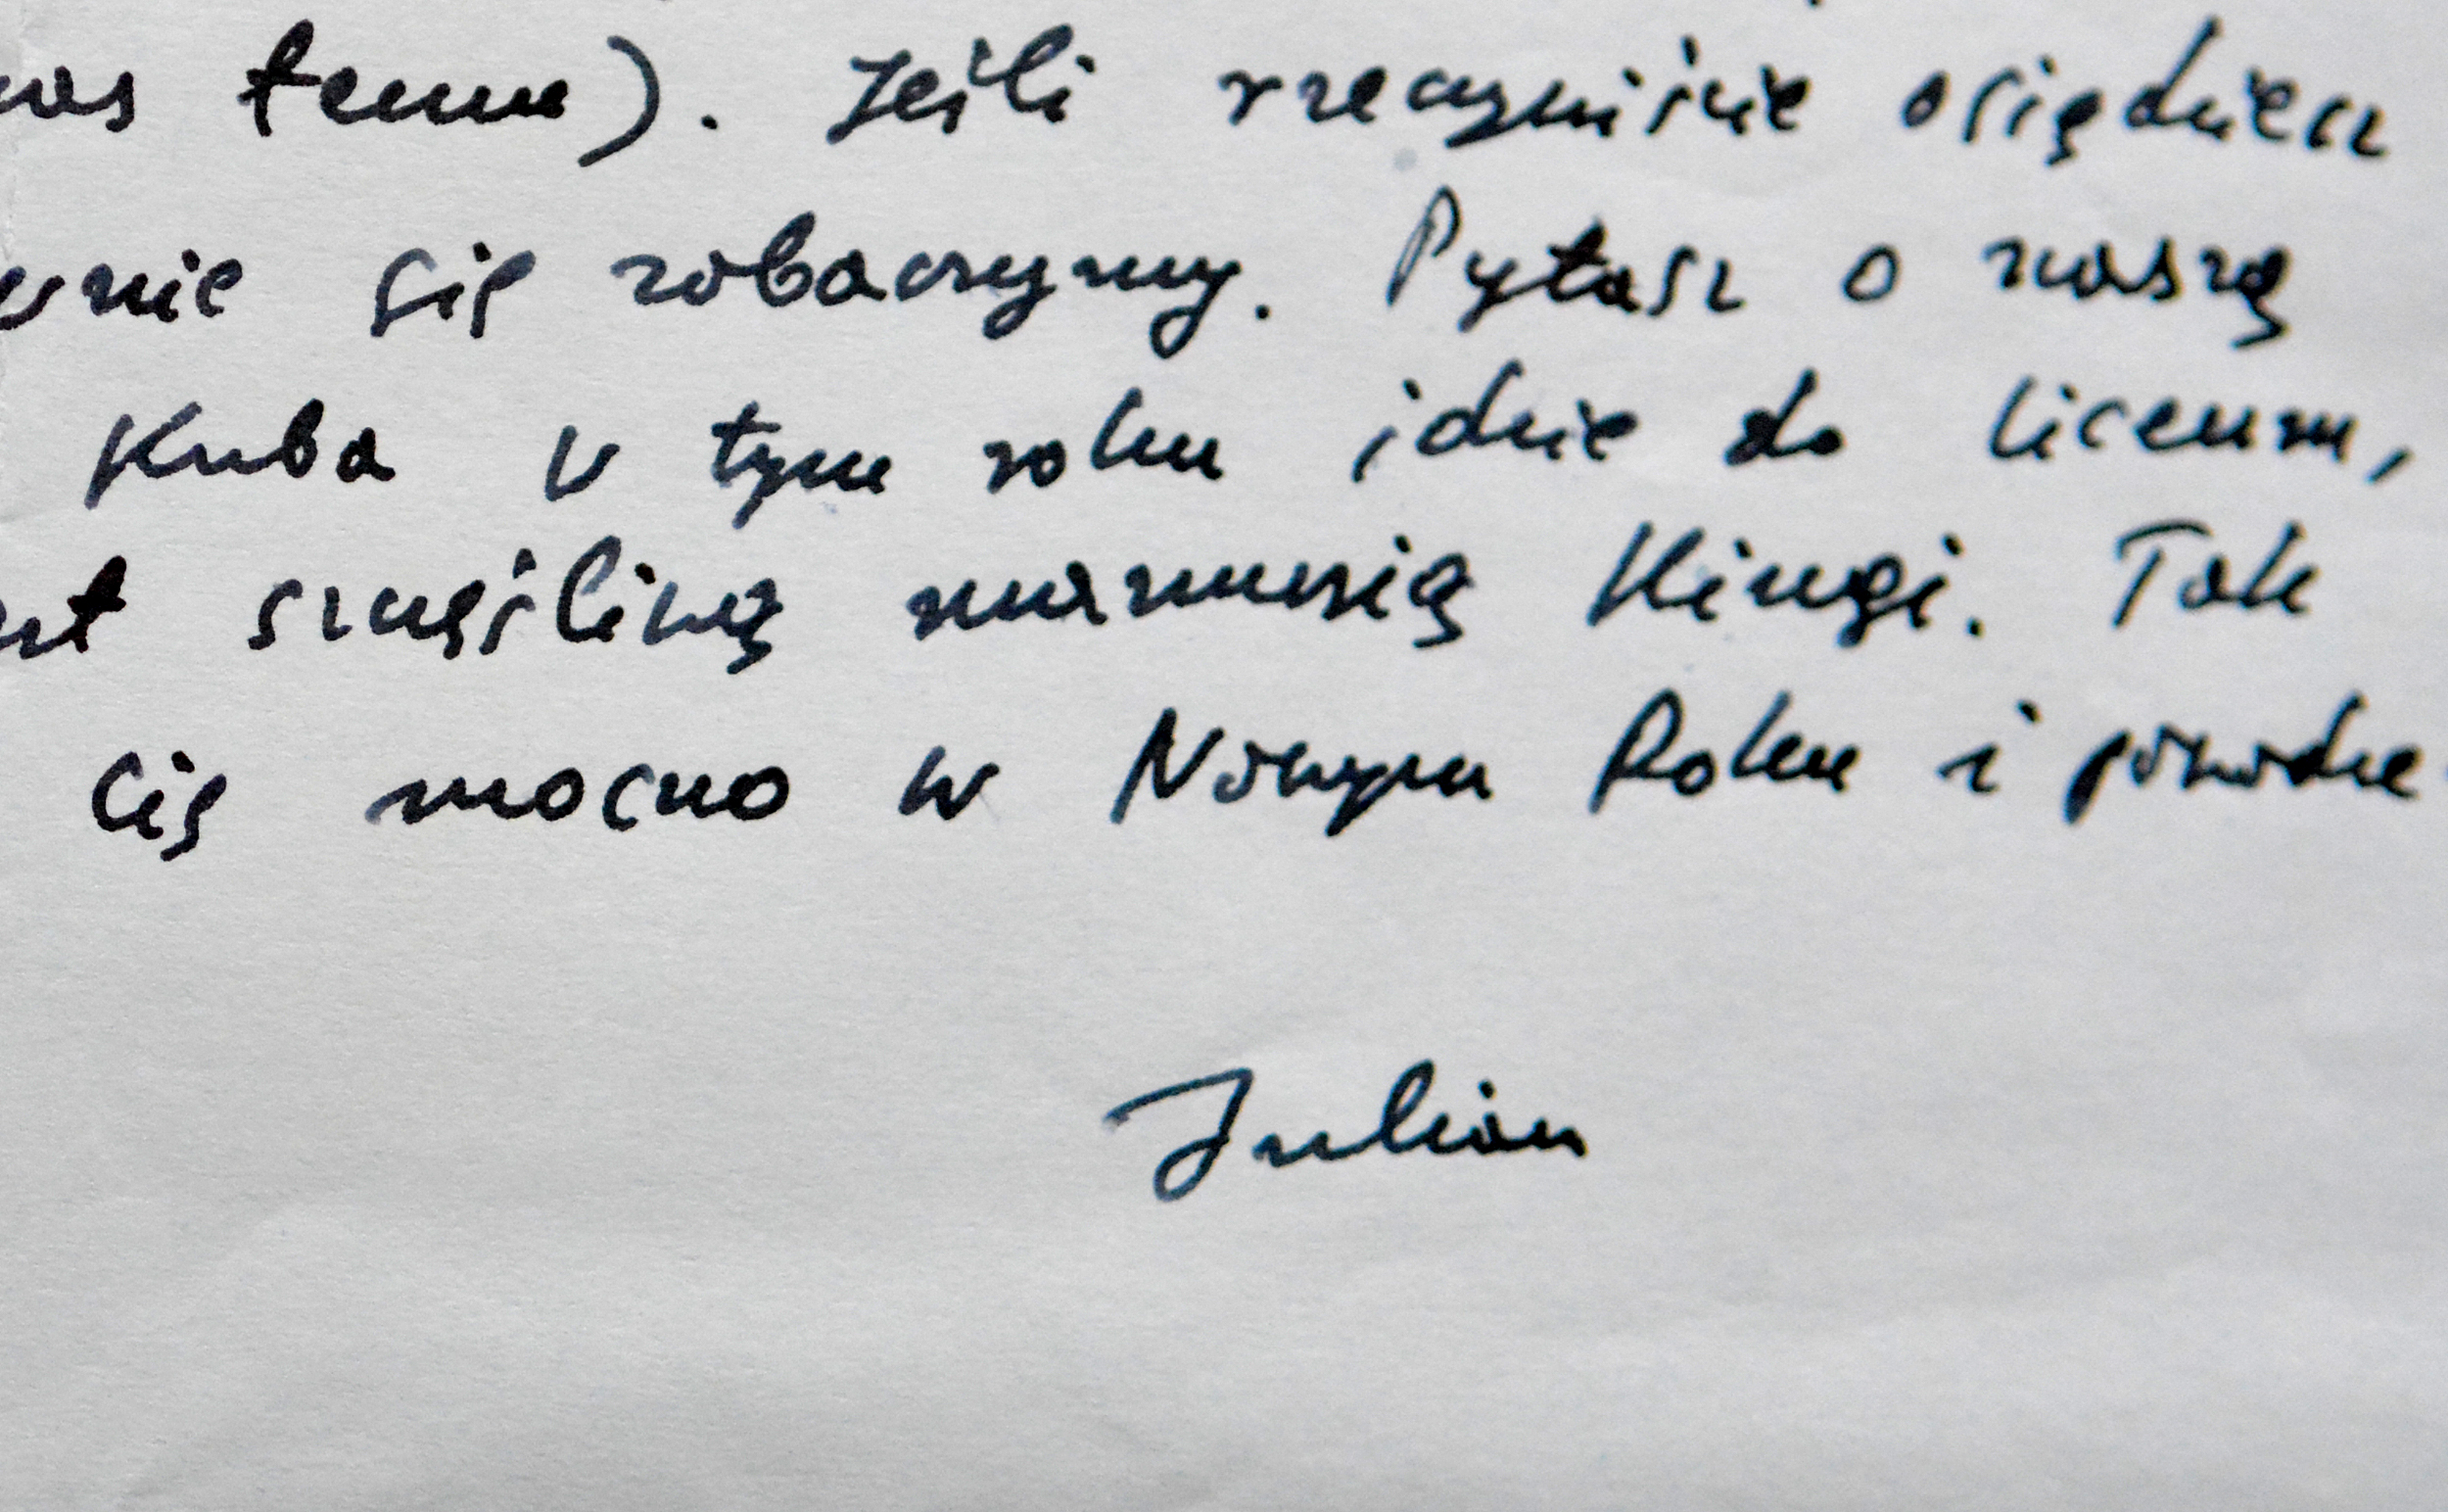 temu). Jeśli rzeczywiście osiędziesz
się zobaczymy. Pytasz o naszą
Kuba w tym roku idzie do liceum,
szczęśliwą mamusią Kingi. Tak
Cię mocno w Nowym Roku i powodze
Julian